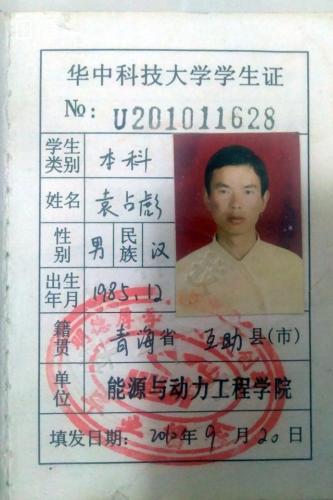 华中科技大学学生证
No: U201011628
学生类别 本科
姓名 袁占彪
性别 男 民族 汉
出生年月 1985.12
籍贯 青海省 互助县(市)
单位 能源与动力工程学院
填发日期: 2010年9月20日